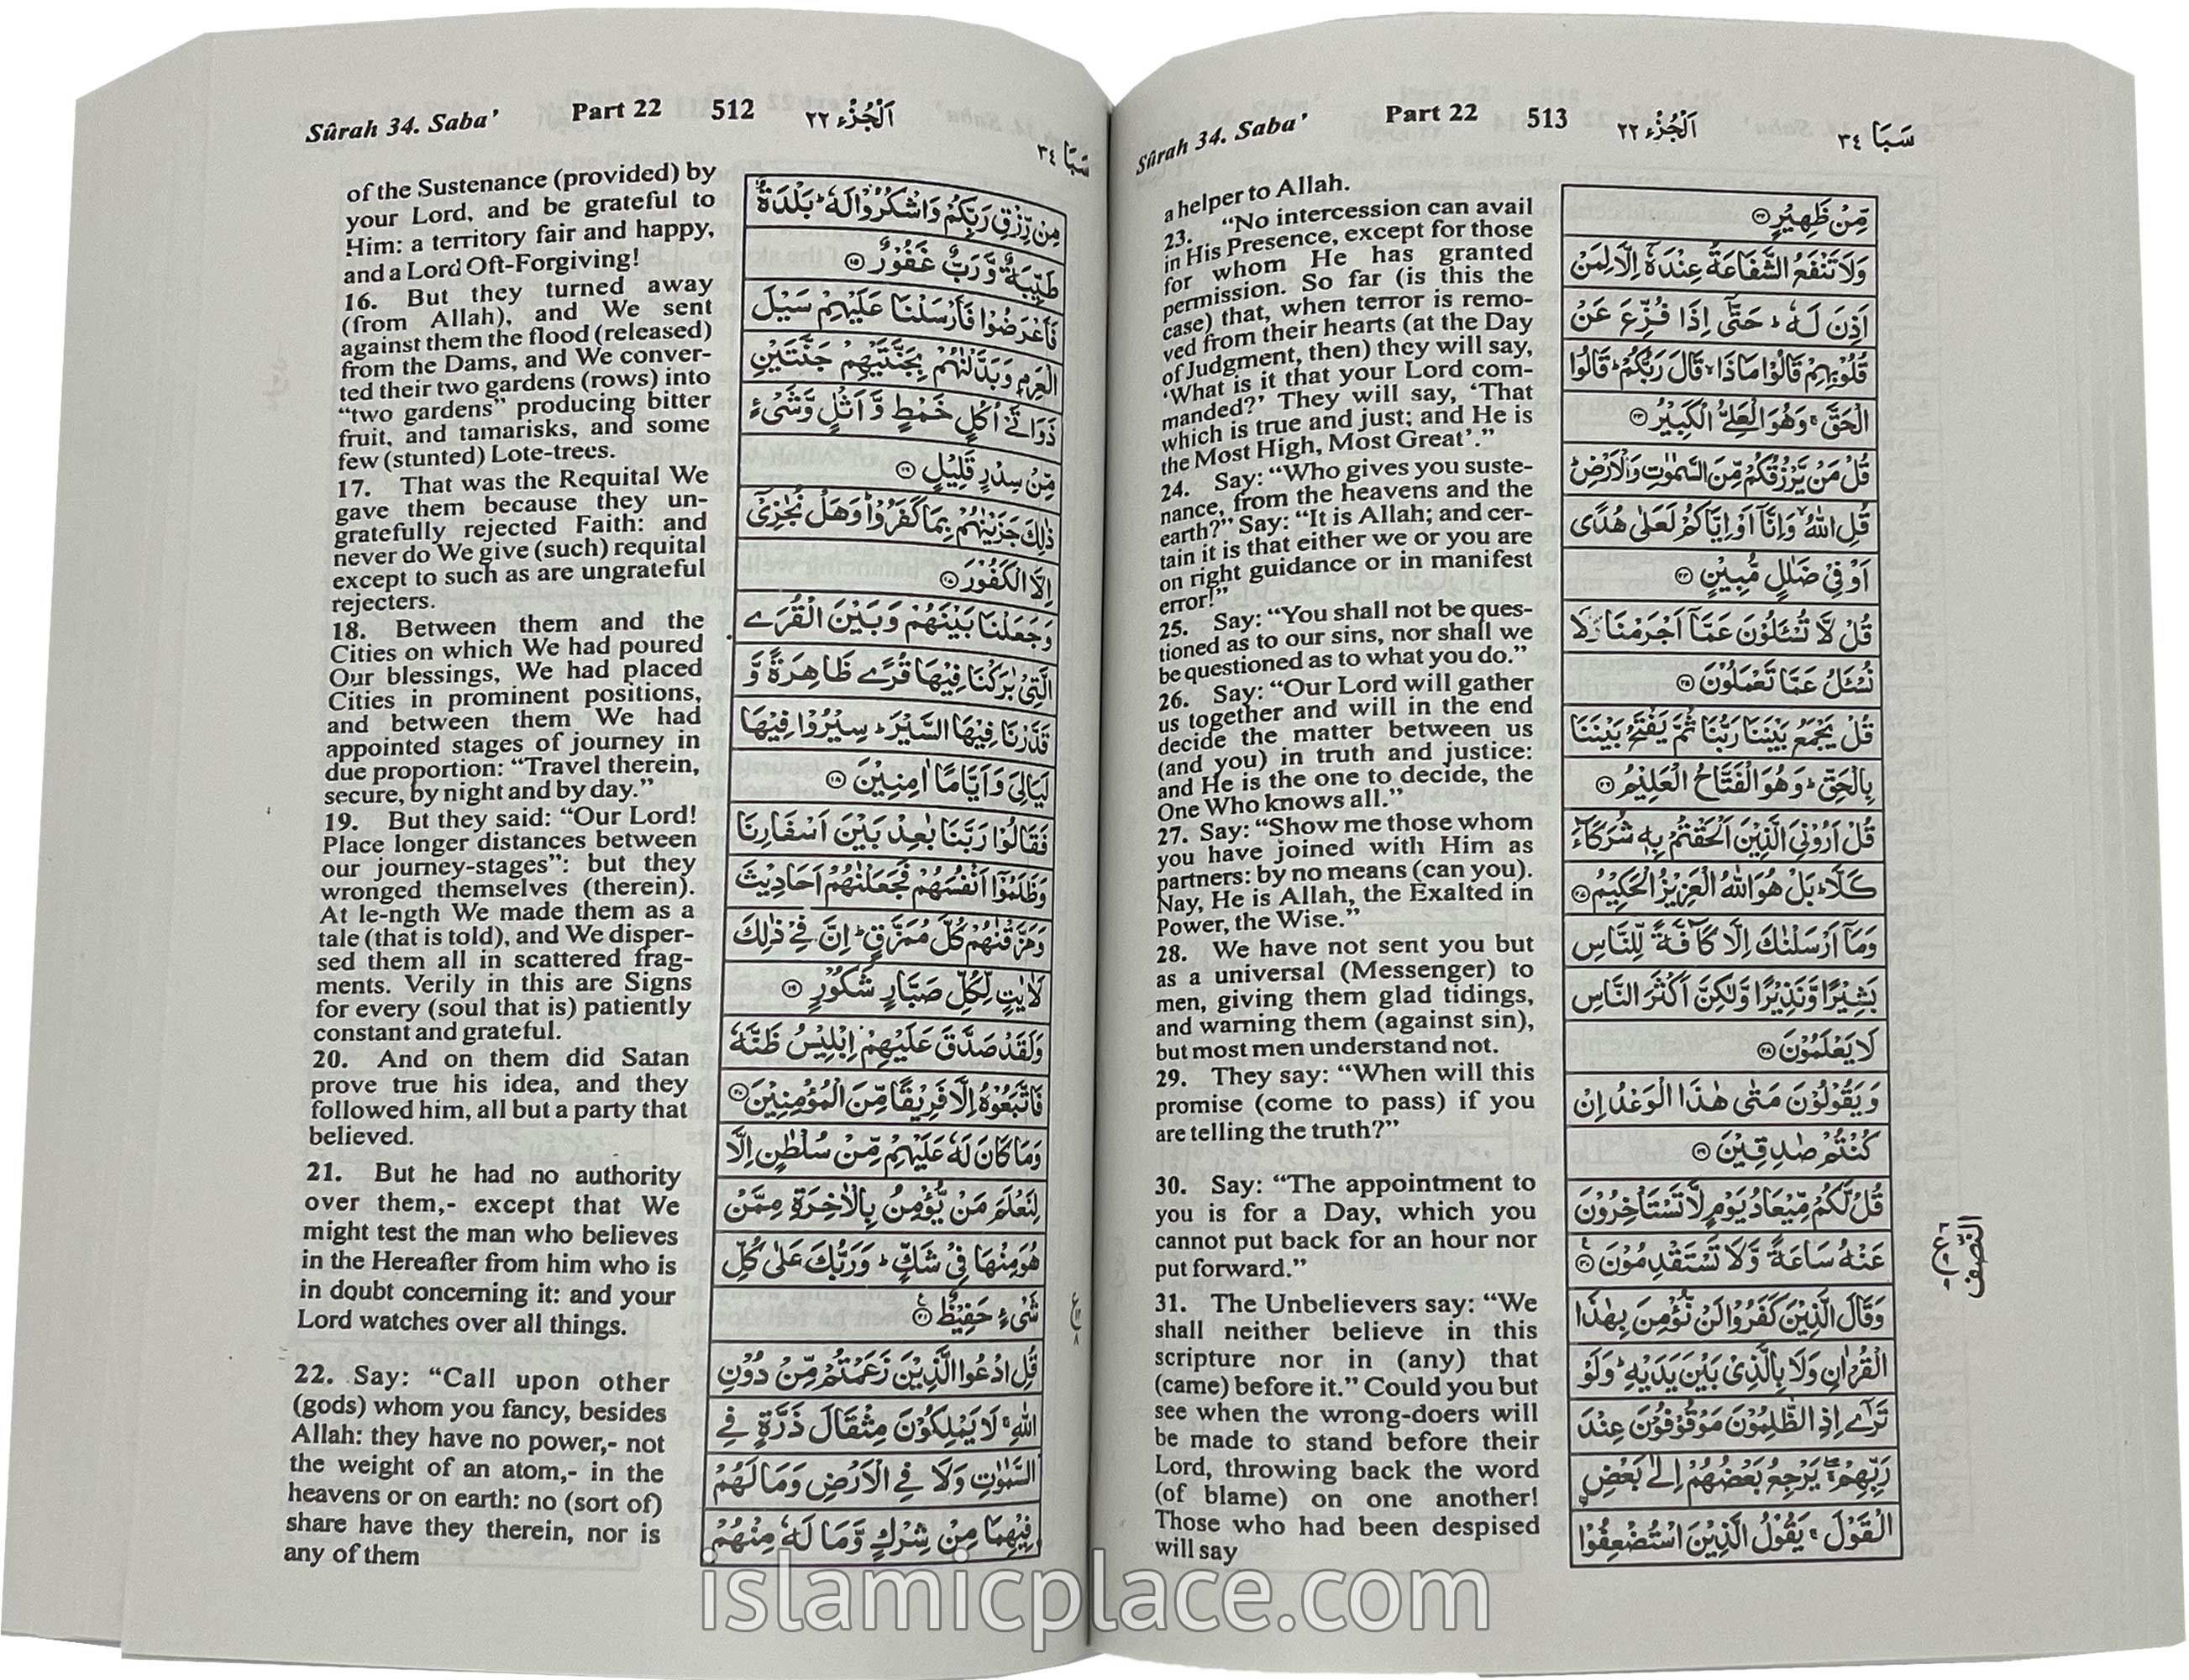 Sûrah 34. Saba’ Part 22 512 اَلْجُزْء ٢٢ سَبَا ٣٤
of the Sustenance (provided) by
your Lord, and be grateful to
Him: a territory fair and happy,
and a Lord Oft-Forgiving!
16. But they turned away
(from Allah), and We sent
against them the flood (released)
from the Dams, and We conver-
ted their two gardens (rows) into
“two gardens” producing bitter
fruit, and tamarisks, and some
few (stunted) Lote-trees.
17. That was the Requital We
gave them because they un-
gratefully rejected Faith: and
never do We give (such) requital
except to such as are ungrateful
rejecters.
18. Between them and the
Cities on which We had poured
Our blessings, We had placed
Cities in prominent positions,
and between them We had
appointed stages of journey in
due proportion: “Travel therein,
secure, by night and by day.”
19. But they said: “Our Lord!
Place longer distances between
our journey-stages”: but they
wronged themselves (therein).
At le-ngth We made them as a
tale (that is told), and We disper-
sed them all in scattered frag-
ments. Verily in this are Signs
for every (soul that is) patiently
constant and grateful.
20. And on them did Satan
prove true his idea, and they
followed him, all but a party that
believed.
21. But he had no authority
over them,- except that We
might test the man who believes
in the Hereafter from him who is
in doubt concerning it: and your
Lord watches over all things.
22. Say: “Call upon other
(gods) whom you fancy, besides
Allah: they have no power,- not
the weight of an atom,- in the
heavens or on earth: no (sort of)
share have they therein, nor is
any of them
مِنْ رِّزْقِ رَبِّكُمْ وَاشْكُرُوْا لَهٗ ؕ بَلْدَةٌ
طَيِّبَةٌ وَّرَبٌّ غَفُوْرٌ ۝١٥
فَاَعْرَضُوْا فَاَرْسَلْنَا عَلَيْهِمْ سَيْلَ
الْعَرِمِ وَبَدَّلْنٰهُمْ بِجَنَّتَيْهِمْ جَنَّتَيْنِ
ذَوَاتَىْ اُكُلٍ خَمْطٍ وَّاَثْلٍ وَّشَىْءٍ
مِّنْ سِدْرٍ قَلِيْلٍ ۝١٦
ذٰلِكَ جَزَيْنٰهُمْ بِمَا كَفَرُوْا ؕ وَهَلْ نُجٰزِىْٓ
اِلَّا الْكَفُوْرَ ۝١٧
وَجَعَلْنَا بَيْنَهُمْ وَبَيْنَ الْقُرَى
الَّتِىْ بٰرَكْنَا فِيْهَا قُرًى ظَاهِرَةً وَّ
قَدَّرْنَا فِيْهَا السَّيْرَ ؕ سِيْرُوْا فِيْهَا
لَيَالِىَ وَاَيَّامًا اٰمِنِيْنَ ۝١٨
فَقَالُوْا رَبَّنَا بٰعِدْ بَيْنَ اَسْفَارِنَا
وَظَلَمُوْٓا اَنْفُسَهُمْ فَجَعَلْنٰهُمْ اَحَادِيْثَ
وَمَزَّقْنٰهُمْ كُلَّ مُمَزَّقٍ ؕ اِنَّ فِىْ ذٰلِكَ
لَاٰيٰتٍ لِّكُلِّ صَبَّارٍ شَكُوْرٍ ۝١٩
وَلَقَدْ صَدَّقَ عَلَيْهِمْ اِبْلِيْسُ ظَنَّهٗ
فَاتَّبَعُوْهُ اِلَّا فَرِيْقًا مِّنَ الْمُؤْمِنِيْنَ ۝٢٠
وَمَا كَانَ لَهٗ عَلَيْهِمْ مِّنْ سُلْطٰنٍ اِلَّا
لِنَعْلَمَ مَنْ يُّؤْمِنُ بِالْاٰخِرَةِ مِمَّنْ
هُوَ مِنْهَا فِىْ شَكٍّ ؕ وَرَبُّكَ عَلٰى كُلِّ
شَىْءٍ حَفِيْظٌ ۝٢١
قُلِ ادْعُوا الَّذِيْنَ زَعَمْتُمْ مِّنْ دُوْنِ
اللّٰهِ ۚ لَا يَمْلِكُوْنَ مِثْقَالَ ذَرَّةٍ فِى
السَّمٰوٰتِ وَلَا فِى الْاَرْضِ وَمَا لَهُمْ
فِيْهِمَا مِنْ شِرْكٍ وَّمَا لَهٗ مِنْهُمْ
Sûrah 34. Saba’ Part 22 513 اَلْجُزْء ٢٢ سَبَا ٣٤
a helper to Allah.
23. “No intercession can avail
in His Presence, except for those
for whom He has granted
permission. So far (is this the
case) that, when terror is remo-
ved from their hearts (at the Day
of Judgment, then) they will say,
‘What is it that your Lord com-
manded?’ They will say, ‘That
which is true and just; and He is
the Most High, Most Great’.”
24. Say: “Who gives you suste-
nance, from the heavens and the
earth?” Say: “It is Allah; and cer-
tain it is that either we or you are
on right guidance or in manifest
error!”
25. Say: “You shall not be ques-
tioned as to our sins, nor shall we
be questioned as to what you do.”
26. Say: “Our Lord will gather
us together and will in the end
decide the matter between us
(and you) in truth and justice:
and He is the one to decide, the
One Who knows all.”
27. Say: “Show me those whom
you have joined with Him as
partners: by no means (can you).
Nay, He is Allah, the Exalted in
Power, the Wise.”
28. We have not sent you but
as a universal (Messenger) to
men, giving them glad tidings,
and warning them (against sin),
but most men understand not.
29. They say: “When will this
promise (come to pass) if you
are telling the truth?”
30. Say: “The appointment to
you is for a Day, which you
cannot put back for an hour nor
put forward.”
31. The Unbelievers say: “We
shall neither believe in this
scripture nor in (any) that
(came) before it.” Could you but
see when the wrong-doers will
be made to stand before their
Lord, throwing back the word
(of blame) on one another!
Those who had been despised
will say
مِّنْ ظَهِيْرٍ ۝٢٢
وَلَا تَنْفَعُ الشَّفَاعَةُ عِنْدَهٗٓ اِلَّا لِمَنْ
اَذِنَ لَهٗ ؕ حَتّٰٓى اِذَا فُزِّعَ عَنْ
قُلُوْبِهِمْ قَالُوْا مَاذَا ۙ قَالَ رَبُّكُمْ ؕ قَالُوا
الْحَقَّ ۚ وَهُوَ الْعَلِىُّ الْكَبِيْرُ ۝٢٣
قُلْ مَنْ يَّرْزُقُكُمْ مِّنَ السَّمٰوٰتِ وَالْاَرْضِ ؕ
قُلِ اللّٰهُ ۙ وَاِنَّآ اَوْ اِيَّاكُمْ لَعَلٰى هُدًى
اَوْ فِىْ ضَلٰلٍ مُّبِيْنٍ ۝٢٤
قُلْ لَّا تُسْـَٔلُوْنَ عَمَّآ اَجْرَمْنَا وَلَا
نُسْـَٔلُ عَمَّا تَعْمَلُوْنَ ۝٢٥
قُلْ يَجْمَعُ بَيْنَنَا رَبُّنَا ثُمَّ يَفْتَحُ بَيْنَنَا
بِالْحَقِّ ؕ وَهُوَ الْفَتَّاحُ الْعَلِيْمُ ۝٢٦
قُلْ اَرُوْنِىَ الَّذِيْنَ اَلْحَقْتُمْ بِهٖ شُرَكَآءَ
كَلَّا ؕ بَلْ هُوَ اللّٰهُ الْعَزِيْزُ الْحَكِيْمُ ۝٢٧
وَمَآ اَرْسَلْنٰكَ اِلَّا كَآفَّةً لِّلنَّاسِ
بَشِيْرًا وَّنَذِيْرًا وَّلٰكِنَّ اَكْثَرَ النَّاسِ
لَا يَعْلَمُوْنَ ۝٢٨
وَيَقُوْلُوْنَ مَتٰى هٰذَا الْوَعْدُ اِنْ
كُنْتُمْ صٰدِقِيْنَ ۝٢٩
قُلْ لَّكُمْ مِّيْعَادُ يَوْمٍ لَّا تَسْتَاْخِرُوْنَ
عَنْهُ سَاعَةً وَّلَا تَسْتَقْدِمُوْنَ ۝٣٠
وَقَالَ الَّذِيْنَ كَفَرُوْا لَنْ نُّؤْمِنَ بِهٰذَا
الْقُرْاٰنِ وَلَا بِالَّذِىْ بَيْنَ يَدَيْهِ ؕ وَلَوْ
تَرٰٓى اِذِ الظّٰلِمُوْنَ مَوْقُوْفُوْنَ عِنْدَ
رَبِّهِمْ ۖ يَرْجِعُ بَعْضُهُمْ اِلٰى بَعْضِ
الْقَوْلَ ۚ يَقُوْلُ الَّذِيْنَ اسْتُضْعِفُوْا
النّصف
islamicplace.com